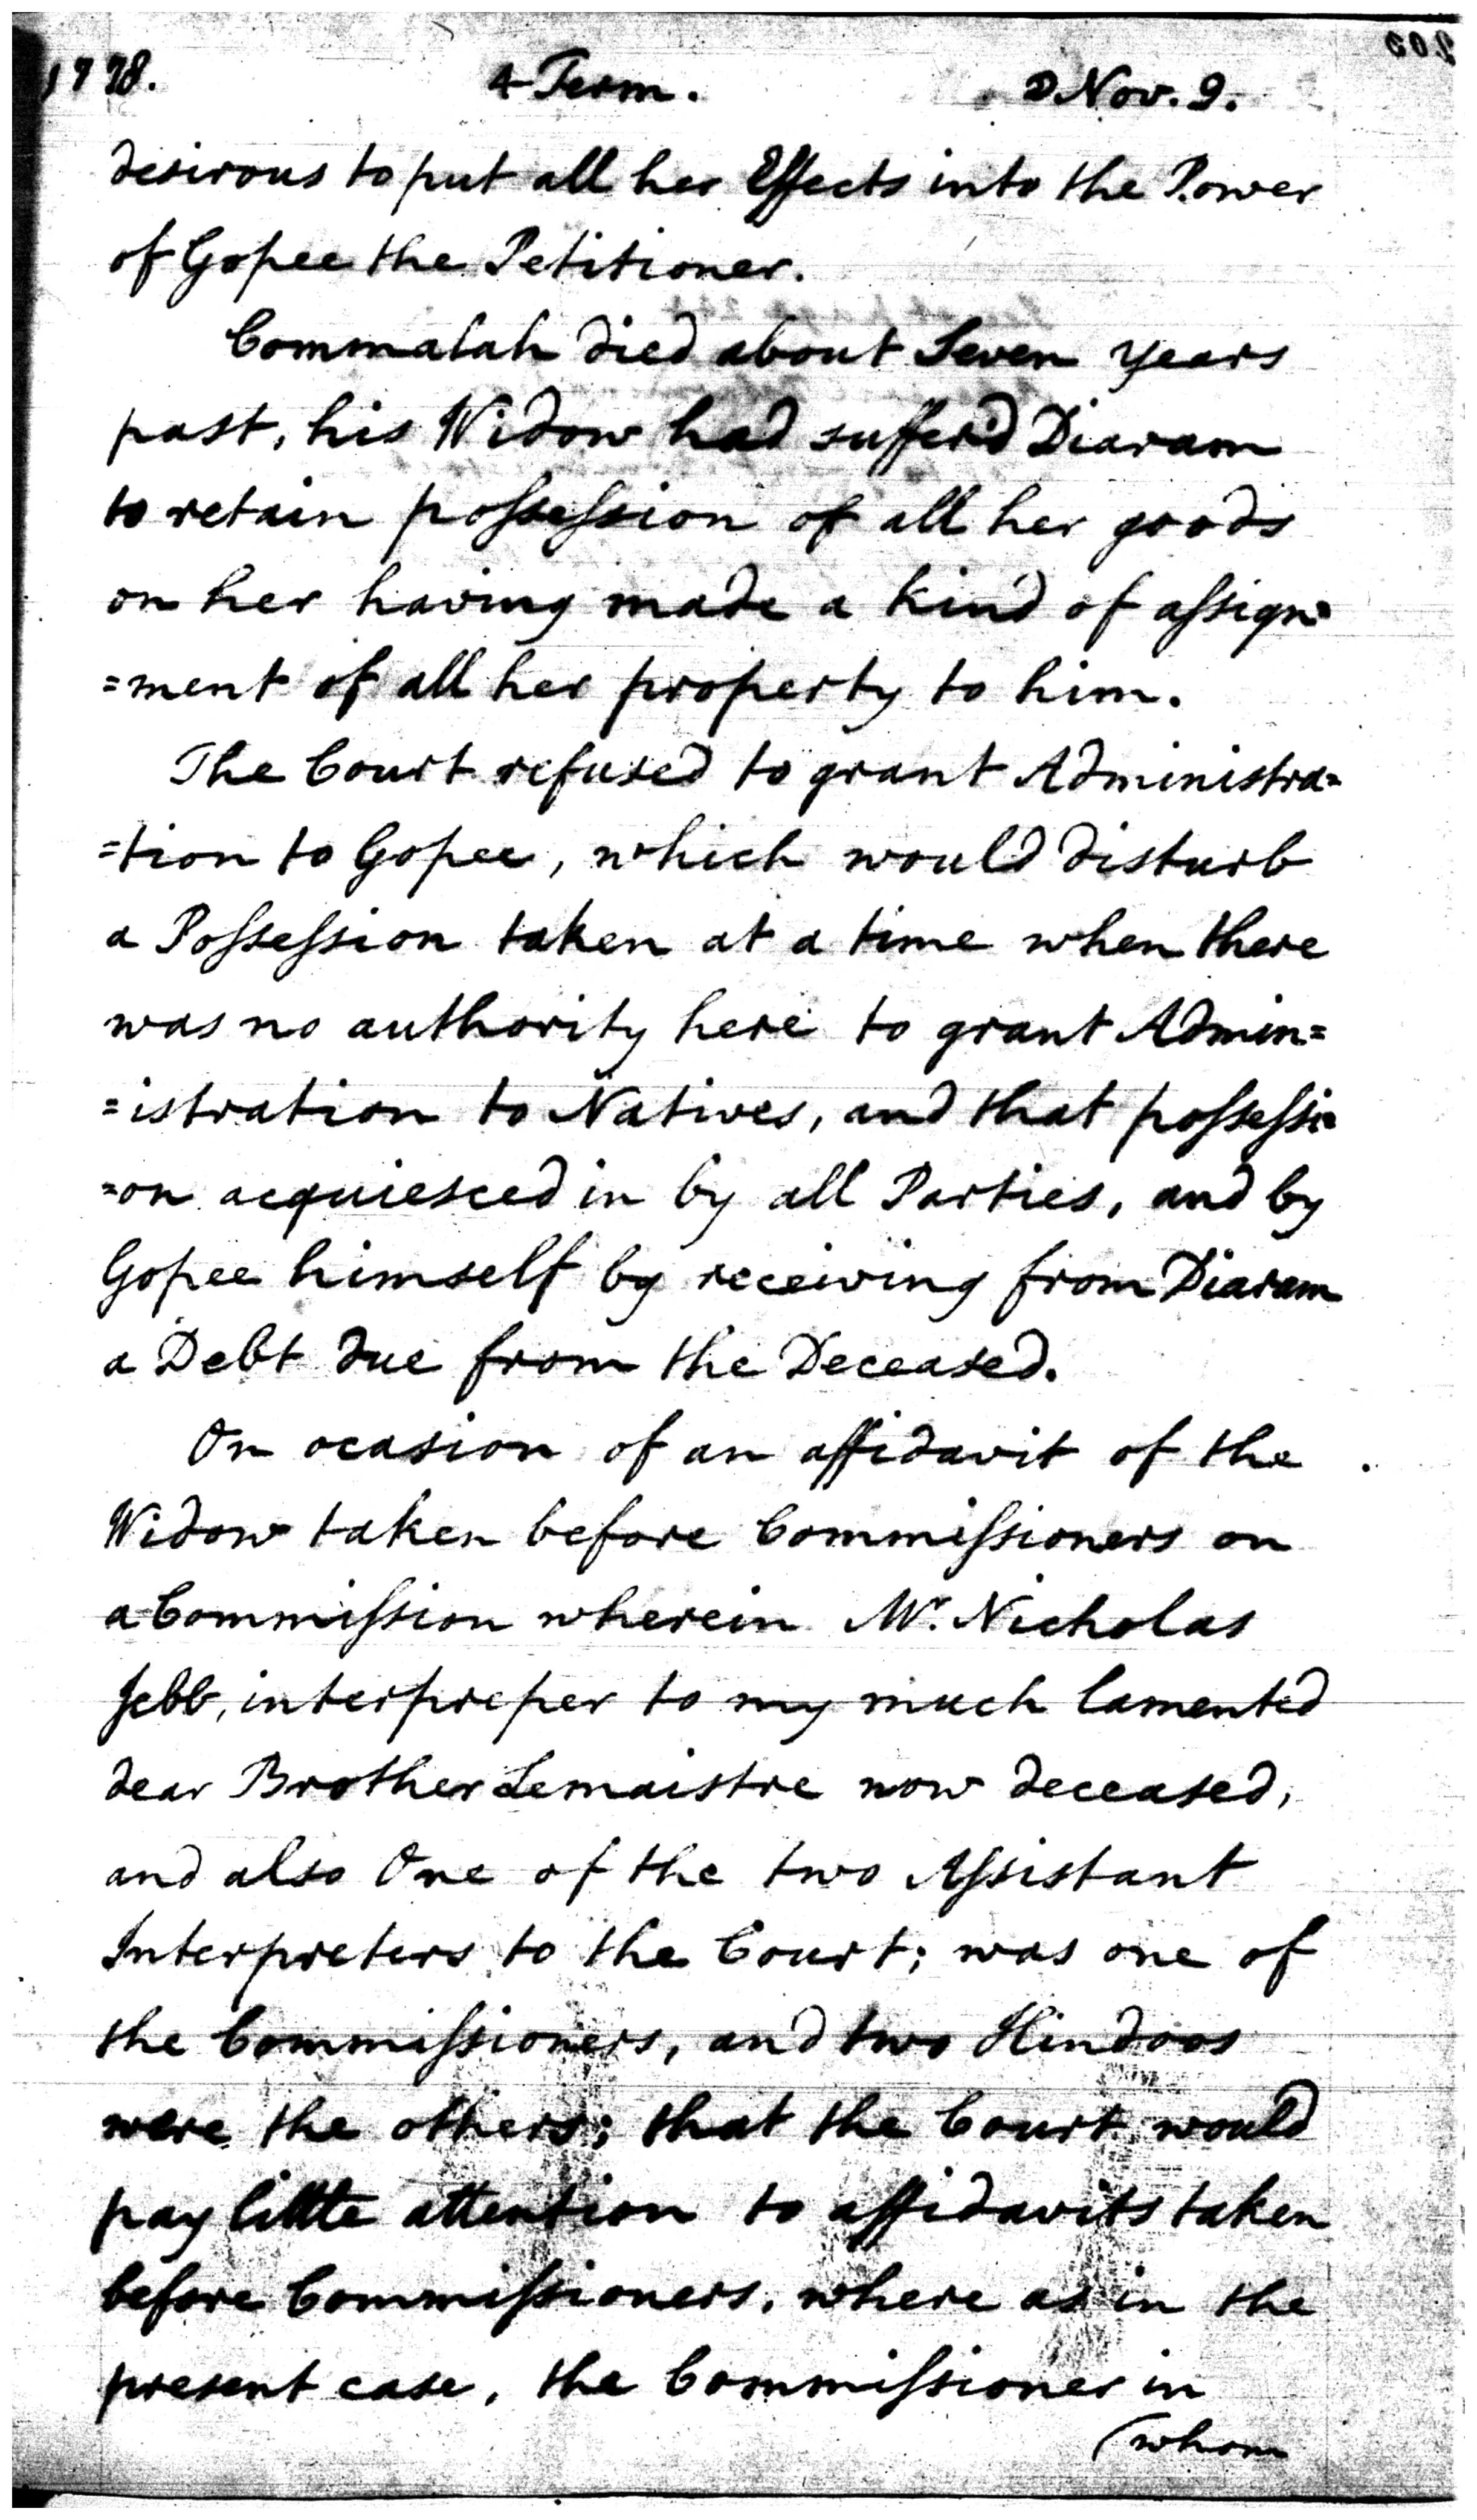 1778. 4 Term. ☽ Nov. 9.
desirous to put all her Effects into the Power
of Gopee the Petitioner.
Commalah died about Seven Years
past, his Widow had suffer'd Diaram
to retain poſseſsion of all her goods
on her having made a kind of aſsign=
=ment of all her property to him.
The Court refused to grant Administra=
=tion to Gopee, which would disturb
a Poſseſsion taken at a time when there
was no authority here to grant Admin=
=istration to Natives, and that poſseſsi=
=on acquiesced in by all Parties, and by
Gopee himself by receiving from Diaram
a Debt due from the Deceased.
On ocasion of an affidavit of the
Widow taken before Commiſsioners on
a Commiſsion wherein Mr. Nicholas
Jebb, interpreper to my much lamented
dear Brother Lemaistre now deceased,
and also One of the two Aſsistant
Interpreters to the Court; was one of
the Commiſsioners, and two Hindoos
were the others; that the Court would
pay little attention to affidavits taken
before Commiſsioners, where as in the
present case, the Commiſsioner in
(whom